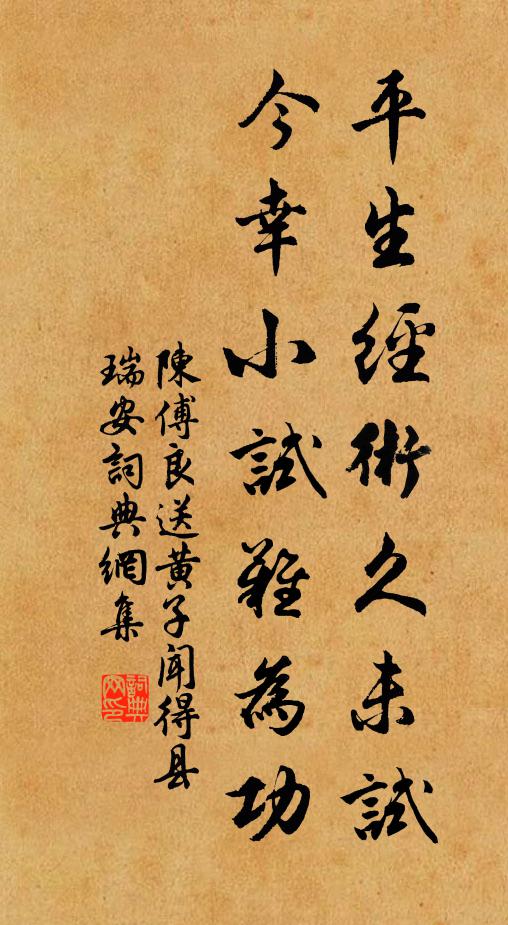 平生經術久未試
今幸小試難為功
陳傅良送黄子聞得县
瑞安詞典網集
詞典网印